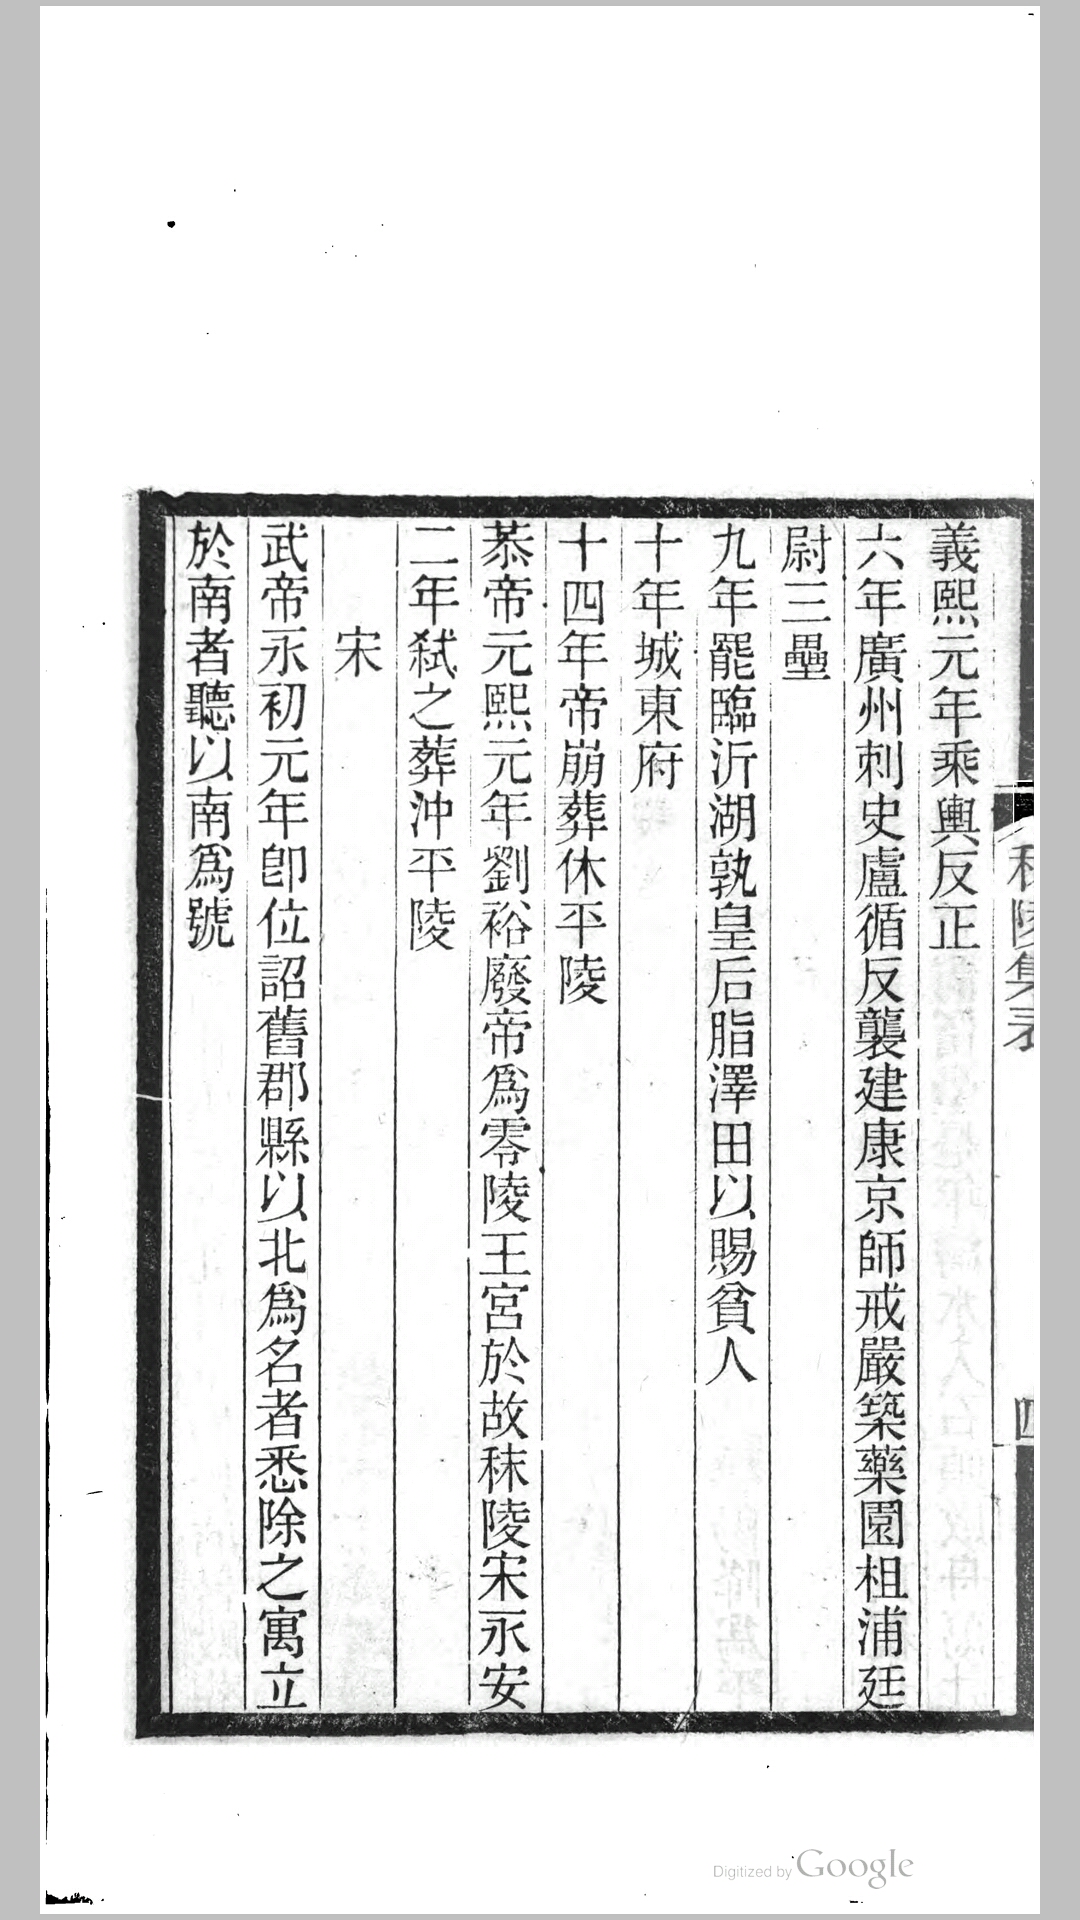 義熙元年乘輿反正
六年廣州刺史盧循反襲建康京師戒嚴築藥園柤浦廷
尉三壘
九年罷臨沂湖孰皇后脂澤田以賜貧人
十年城東府
十四年帝崩葬休平陵
恭帝元熙元年劉裕廢帝爲零陵王宮於故秣陵宋永安
二年弒之葬沖平陵
宋
武帝永初元年卽位詔舊郡縣以北爲名者悉除之寓立
於南者聽以南爲號
Digitized by Google